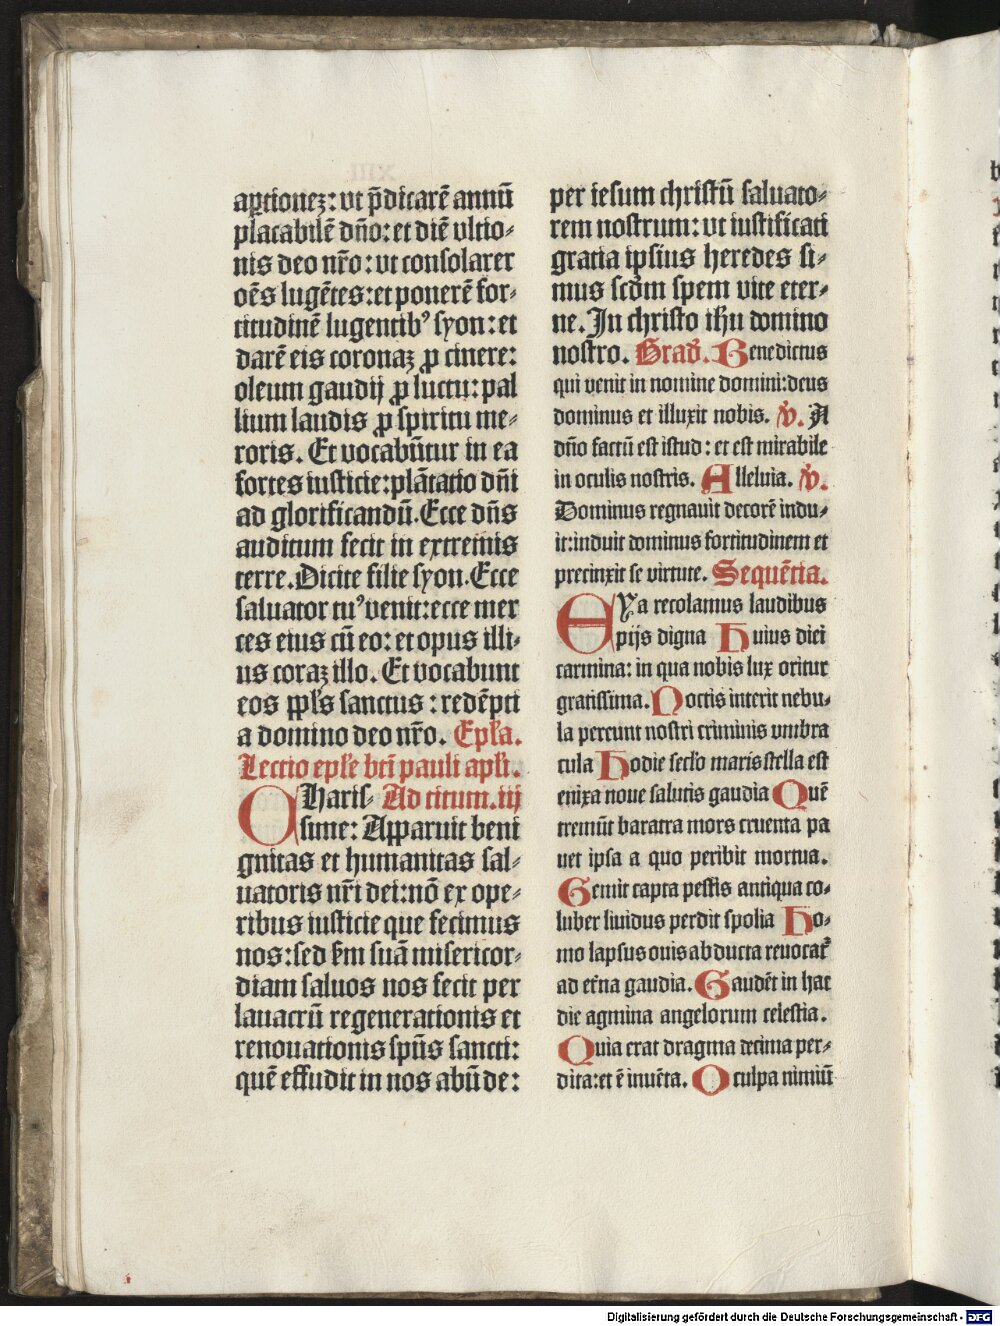 aꝑtionez: vt p̄dicarē annū
placabilē dn̄o: et diē vltio⸗
nis deo nr̄o: vt consolarer
oēs lugētes: et ponerē for⸗
titudinē lugentibꝰ syon: et
darē eis coronaꝫ ꝓ cinere:
oleum gaudij ꝓ luctu: pal
lium laudis ꝓ spiritu me⸗
roris. Et vocabūtur in ea
fortes iusticie: plātatio dn̄i
ad glorificandū. Ecce dn̄s
auditum fecit in extremis
terre. Dicite filie syon. Ecce
saluator tuꝰ venit: ecce mer
ces eius cū eo: et opus illi⸗
us coraꝫ illo. Et vocabunt
eos ppl̄s sanctus: redēpti
a domino deo nr̄o. Epl̄a.
Lectio epl̄e btī pauli apl̄i.
Charis⸗ Ad titum. iij
sime: Apparuit beni
gnitas et humanitas sal⸗
uatoris nr̄i dei: nō ex ope⸗
ribus iusticie que fecimus
nos: sed ẜm suā misericor⸗
diam saluos nos fecit per
lauacrū regenerationis et
renouationis spūs sancti:
quē effudit in nos abūde:
per iesum christū saluato⸗
rem nostrum: vt iustificati
gratia ipsius heredes si⸗
mus scdm̄ spem vite eter⸗
ne. In christo ihū domino
nostro. Grad̄. Benedictus
qui venit in nomine domini: deus
dominus et illuxit nobis. ꝟ. A
dn̄o factū est istud: et est mirabile
in oculis nostris. Alleluia. ꝟ.
Dominus regnauit decorē indu⸗
it: induit dominus fortitudinem et
precinxit se virtute. Sequētia.
EYa recolamus laudibus
pijs digna Huius diei
carmina: in qua nobis lux oritur
gratissima. Noctis interit nebu⸗
la pereunt nostri criminis vmbra
cula Hodie secl̄o maris stella est
enixa noue salutis gaudia Quē
tremūt baratra mors cruenta pa
uet ipsa a quo peribit mortua.
Gemit capta pestis antiqua co⸗
luber liuidus perdit spolia Ho⸗
mo lapsus ouis abducta reuocat᷑
ad et̄na gaudia. Gaudēt in hac
die agmina angelorum celestia.
Quia erat dragma decima per⸗
dita: et ē inuēta. O culpa nimiū
Digitalisierung gefördert durch die Deutsche Forschungsgemeinschaft - DFG